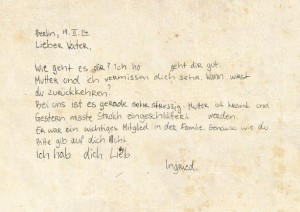 Berlin,
Lieber Vater,
Wie geht es dir? Ich ho geht dir gut.
Mutter und ich vermissen dich sehr. Wann wirst
du zurückkehren?
Bei uns ist es gerade sehr stressig. Mutter ist krank und
Gestern musste Strolch eingeschläfert werden.
Er war ein wichtiges Mitglied in der Familie. Genauso wie du
Bitte gib auf dich Acht.
Ich hab dich Lieb
Ingried